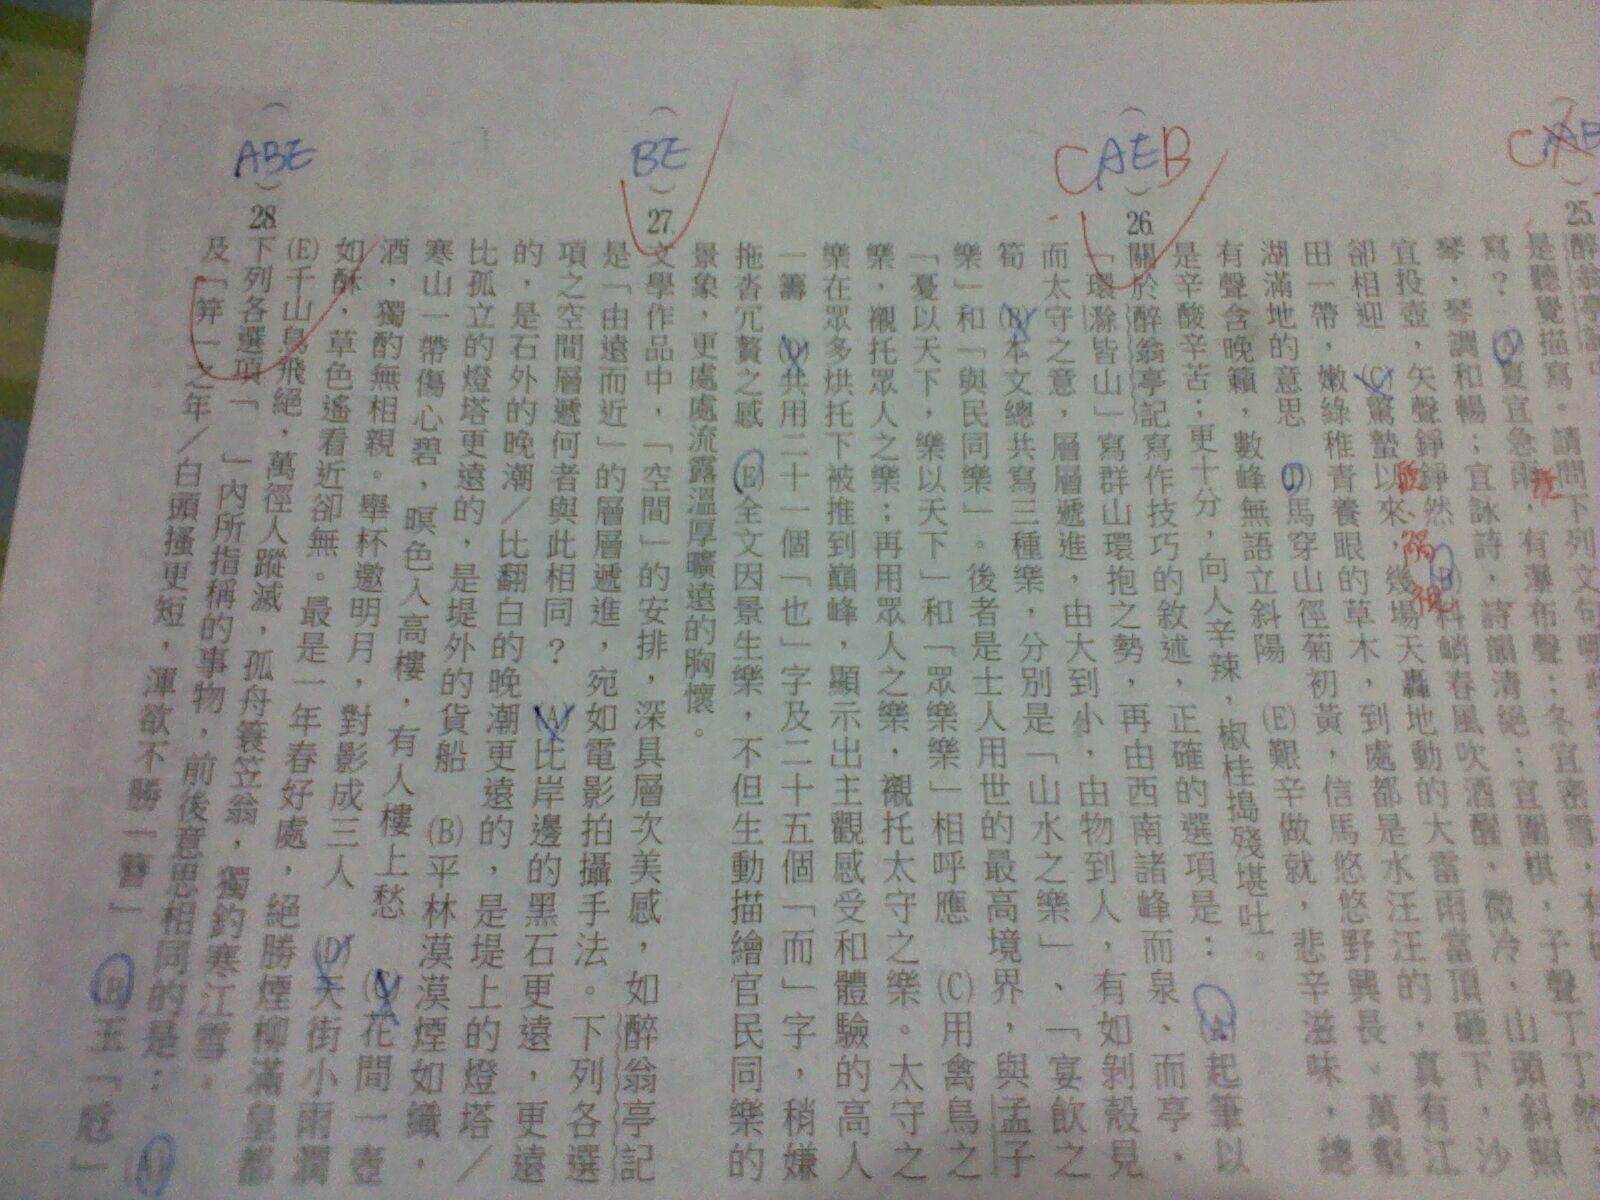 25.
醉翁亭記中
是聽覺描寫。請問下列文句哪些
寫？(A)夏宜急雨，有瀑布聲；冬宜密雪，有碎
琴，琴調和暢；宜詠詩，詩韻清絕；宜圍棋，子聲丁丁然；
宜投壺，矢聲錚錚然 (B)料峭春風吹酒醒，微冷，山頭斜照
卻相迎 (C)驚蟄以來，幾場天轟地動的大雷雨當頂砸下，沙
田一帶，嫩綠稚青養眼的草木，到處都是水汪汪的，真有江
湖滿地的意思 (D)馬穿山徑菊初黃，信馬悠悠野興長。萬壑
有聲含晚籟，數峰無語立斜陽 (E)艱辛做就，悲辛滋味，總
是辛酸辛苦；更十分，向人辛辣，椒桂搗殘堪吐。
CAEB
26.
關於醉翁亭記寫作技巧的敘述，正確的選項是： (A)起筆以
「環滁皆山」寫群山環抱之勢，再由西南諸峰而泉、而亭、
而太守之意，層層遞進，由大到小，由物到人，有如剝殼見
筍 (B)本文總共寫三種樂，分別是「山水之樂」、「宴飲之
樂」和「與民同樂」。後者是士人用世的最高境界，與孟子
「憂以天下，樂以天下」和「眾樂樂」相呼應 (C)用禽鳥之
樂，襯托眾人之樂；再用眾人之樂，襯托太守之樂。太守之
樂在眾多烘托下被推到巔峰，顯示出主觀感受和體驗的高人
一籌 (D)共用二十一個「也」字及二十五個「而」字，稍嫌
拖沓冗贅之感 (E)全文因景生樂，不但生動描繪官民同樂的
景象，更處處流露溫厚曠遠的胸懷。
BE
27.
文學作品中，「空間」的安排，深具層次美感，如醉翁亭記
是「由遠而近」的層層遞進，宛如電影拍攝手法。下列各選
項之空間層遞何者與此相同？ (A)比岸邊的黑石更遠，更遠
的，是石外的晚潮／比翻白的晚潮更遠的，是堤上的燈塔／
比孤立的燈塔更遠的，是堤外的貨船 (B)平林漠漠煙如織，
寒山一帶傷心碧，暝色入高樓，有人樓上愁 (C)花間一壺
酒，獨酌無相親。舉杯邀明月，對影成三人 (D)天街小雨潤
如酥，草色遙看近卻無。最是一年春好處，絕勝煙柳滿皇都
(E)千山鳥飛絕，萬徑人蹤滅，孤舟簑笠翁，獨釣寒江雪。
ABE
28.
下列各選項「 」內所指稱的事物，前後意思相同的是： (A)
及「笄」之年／白頭搔更短，渾欲不勝「簪」 (B)玉「卮」